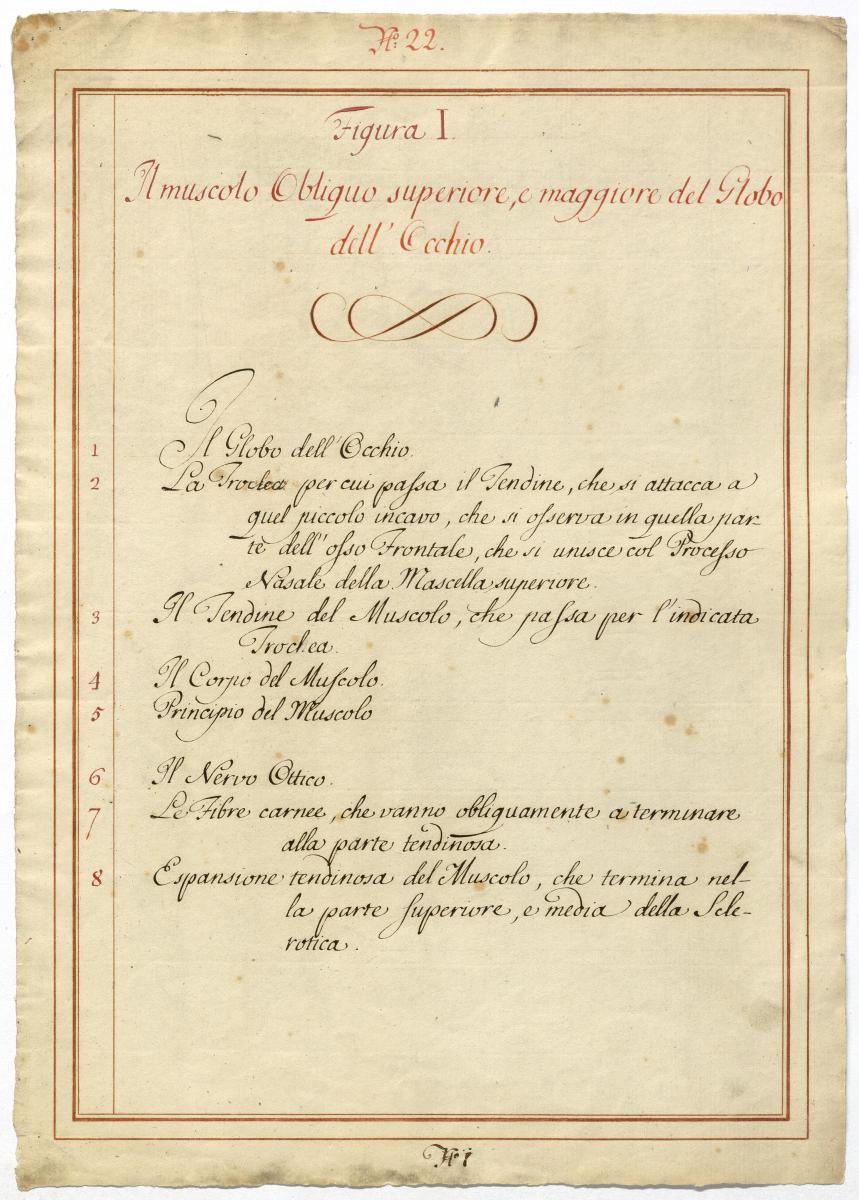 No: 22.
Figura I.
Il muscolo Obliquo superiore, e maggiore del Globo
dell' Occhio.
1 Il Globo dell' Occhio.
2 La Troclea per cui paſsa il Tendine, che si attacca a
quel piccolo incavo, che si oſserva in quella par-
te dell' oſso Frontale, che si unisce col Proceſso
Nasale della Mascella superiore.
3 Il Tendine del Muscolo, che paſsa per l'indicata
Troclea.
4 Il Corpo del Muſcolo.
5 Principio del Muscolo
6 Il Nervo Ottico.
7 Le Fibre carnee, che vanno obliquamente a terminare
alla parte tendinosa.
8 Espansione tendinosa del Muscolo, che termina nel-
la parte ſuperiore, e media della Scle-
rotica.
No 1